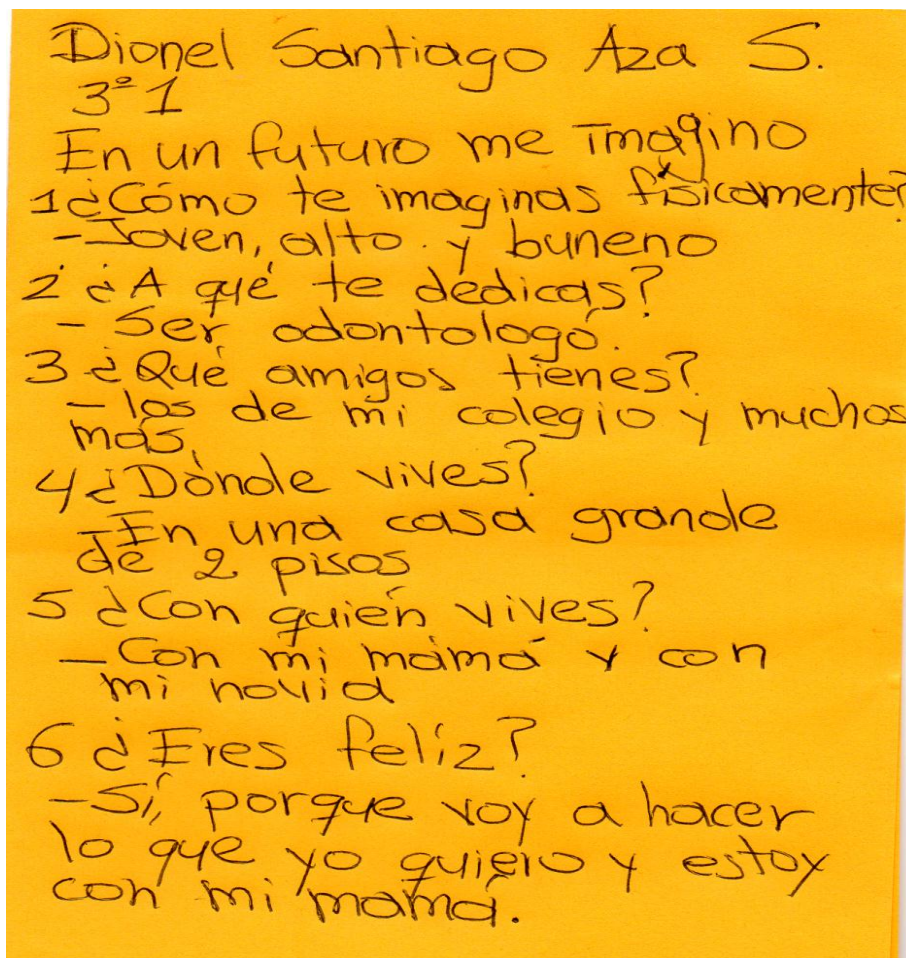 Dionel Santiago Aza S.
3º1
En un futuro me Imagino
1¿Cómo te imaginas físicamente?
-Joven, alto y buneno
2 ¿A qué te dedicas?
- Ser odontologó.
3 ¿Qué amigos tienes?
- los de mi colegio y muchos
más.
4 ¿Dónde vives?
-En una casa grande
de 2 pisos
5 ¿Con quién vives?
- Con mi mamá y con
mi novia
6 ¿Eres feliz?
-Sí, porque voy a hacer
lo que yo quiero y estoy
con mi mamá.